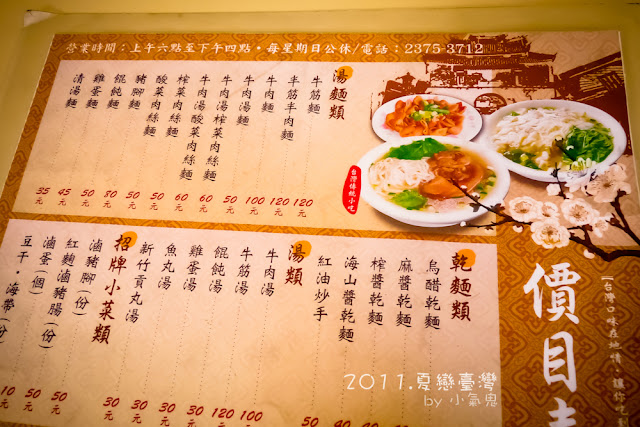 營業時間：上午六點至下午四點・每星期日公休/電話：2375-3712
湯麵類
牛筋麵 120元
半筋半肉麵 120元
牛肉麵 100元
牛肉湯麵 50元
牛肉湯榨菜肉絲麵 60元
牛肉湯酸菜肉絲麵 60元
榨菜肉絲麵 50元
酸菜肉絲麵 50元
豬腳麵 80元
餛飩麵 50元
雞蛋麵 45元
清湯麵 35元
台灣傳統小吃
價目
【台灣口味在地情，讓你吃
乾麵類
烏醋乾麵
麻醬乾麵
榨醬乾麵
海山醬乾麵
紅油炒手
湯類
牛肉湯 100元
牛筋湯 120元
餛飩湯 30元
雞蛋湯 30元
魚丸湯 30元
新竹貢丸湯 30元
招牌小菜類
滷豬腳(份) 50元
紅麴滷豬腸(份) 50元
滷蛋(個) 10元
豆干・海帶(份)
2011.夏戀臺灣
by 小氣鬼